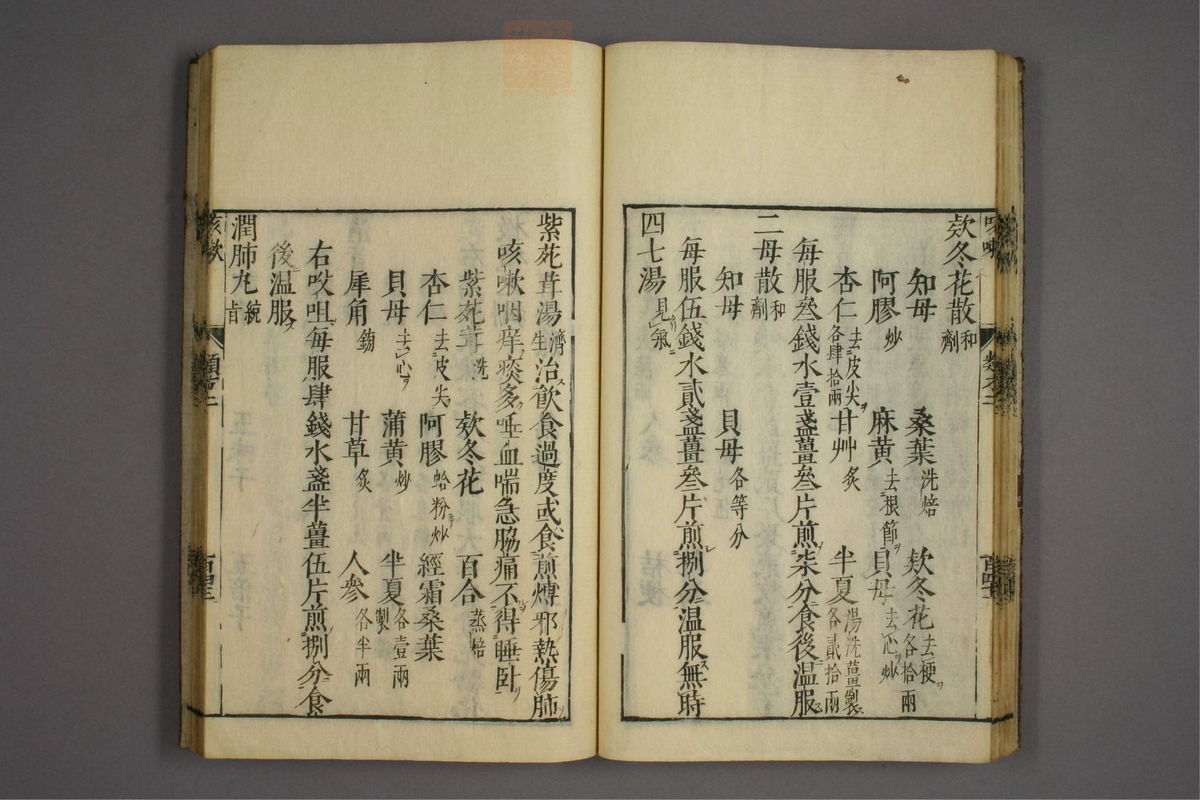 欬冬花散 和劑
知母 桑葉 洗焙 欬冬花 去梗各拾兩
阿膠 炒 麻黄 去根節 貝母 去心炒
杏仁 去皮尖各肆拾兩 甘艸 炙 半夏 湯洗薑製各貳拾兩
每服叄錢水壹盞薑叄片煎柒分食後温服
二母散 和劑
知母 貝母 各等分
每服伍錢水貳盞薑叄片煎捌分温服無時
四七湯 見氣
紫菀茸湯 濟生 治飲食過度或食煎煿邪熱傷肺
咳嗽咽痒痰多唾血喘急脇痛不得睡卧
紫菀茸 洗 欬冬花 百合 蒸焙
杏仁 去皮尖 阿膠 蛤粉炒 經霜桑葉
貝母 去心 蒲黄 炒 半夏 各壹兩製
犀角 鎊 甘草 炙 人參 各半兩
右㕮咀每服肆錢水盞半薑伍片煎捌分食
後温服
潤肺丸 統旨
咳嗽 類方二